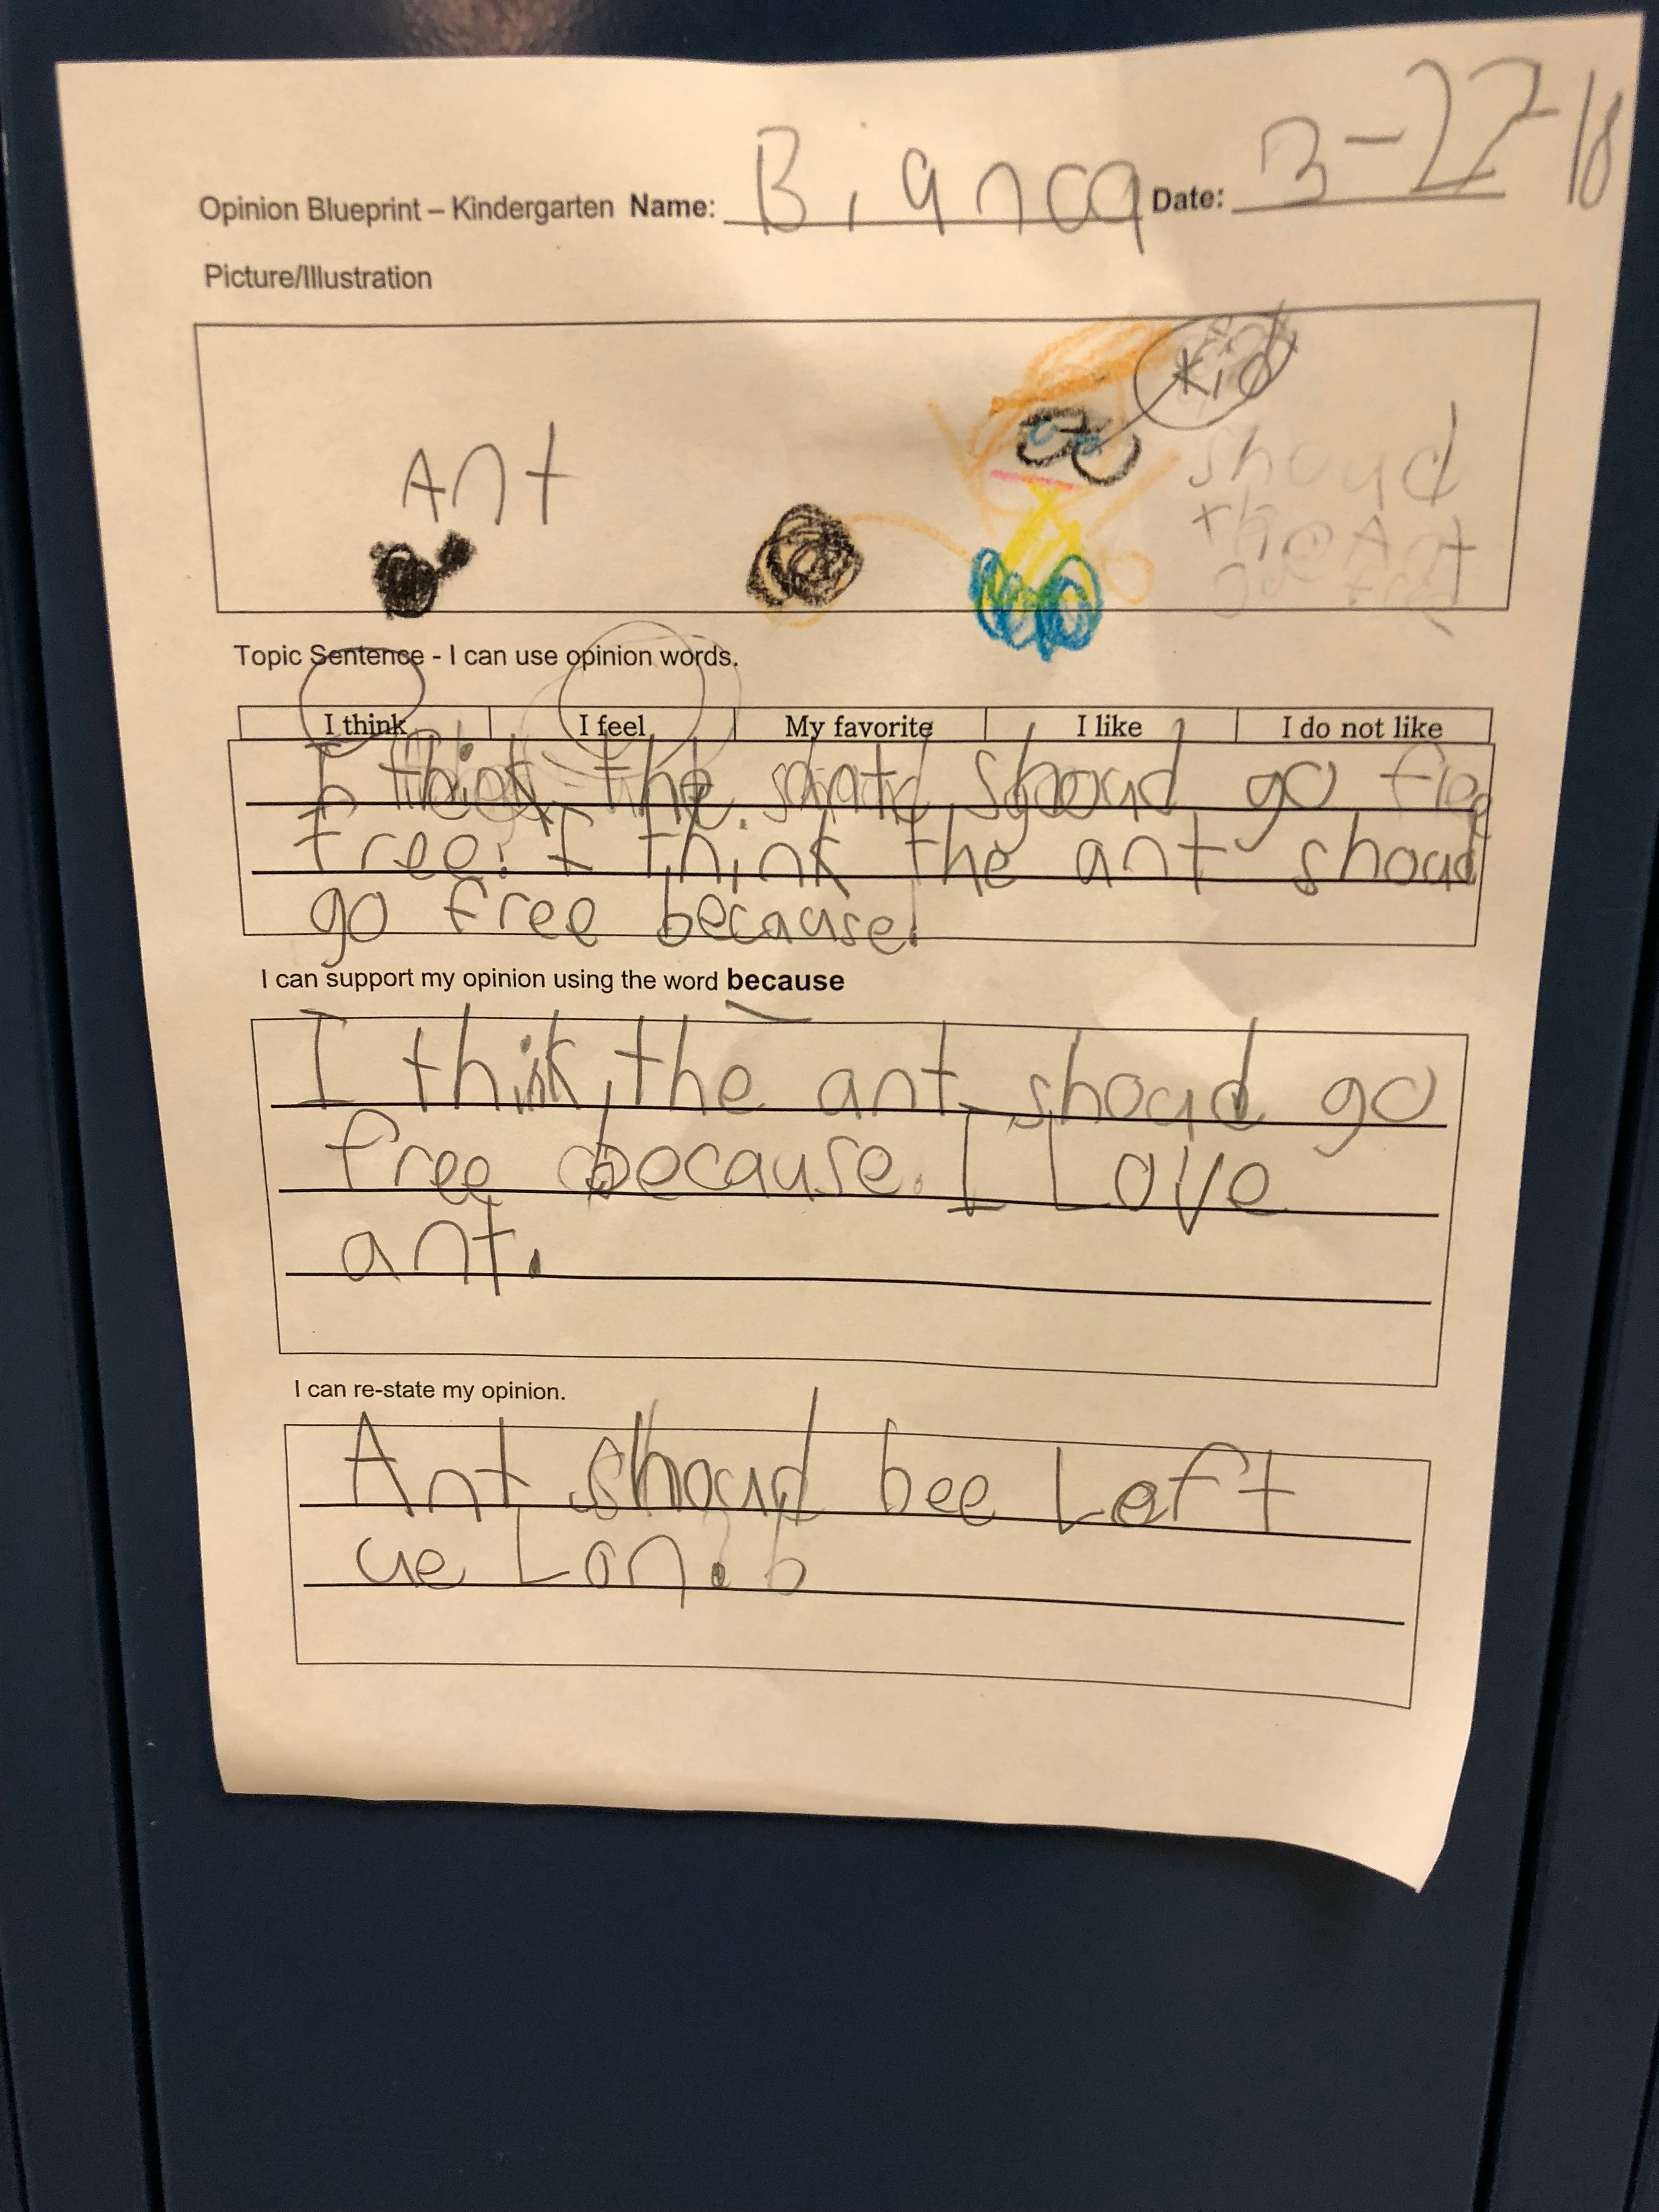 Opinion Blueprint – Kindergarten Name: Bianca Date: 3-27-18
Picture/Illustration
Kid
Ant
shoud
the Ant
Topic Sentence - I can use opinion words.
I think I feel My favorite I like I do not like
I think the shoud go
free. I think the ant shoud
go free because.
I can support my opinion using the word because
I think the ant shoud go
free because. I Love
ant.
I can re-state my opinion.
Ant shoud bee Left
ue Lon.